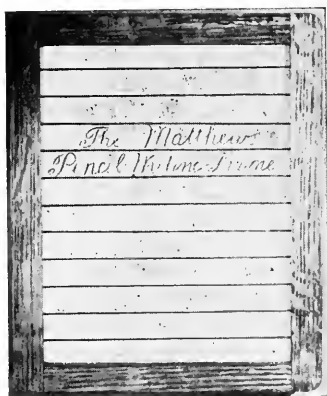 The Matthews
Pencil Writing Frame